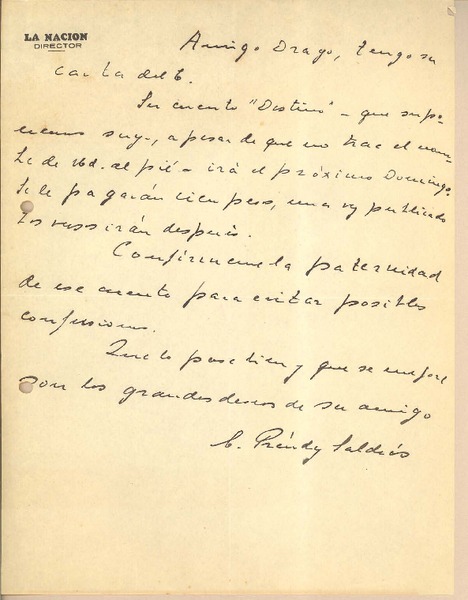 LA NACION
DIRECTOR
Amigo Drago, tengo su
carta del 6.
Su cuento "Destino" - que supo-
nemos suyo, a pesar de que no trae el nom-
bre de Ud. al pié - irá el próximo Domingo.
Se le pagarán cien pesos, una vez publicado
Los versos irán después.
Confírmeme la paternidad
de ese cuento para evitar posibles
confusiones.
Que lo pase bien y que se mejore
son los grandes deseos de su amigo
C. Préndez Saldías